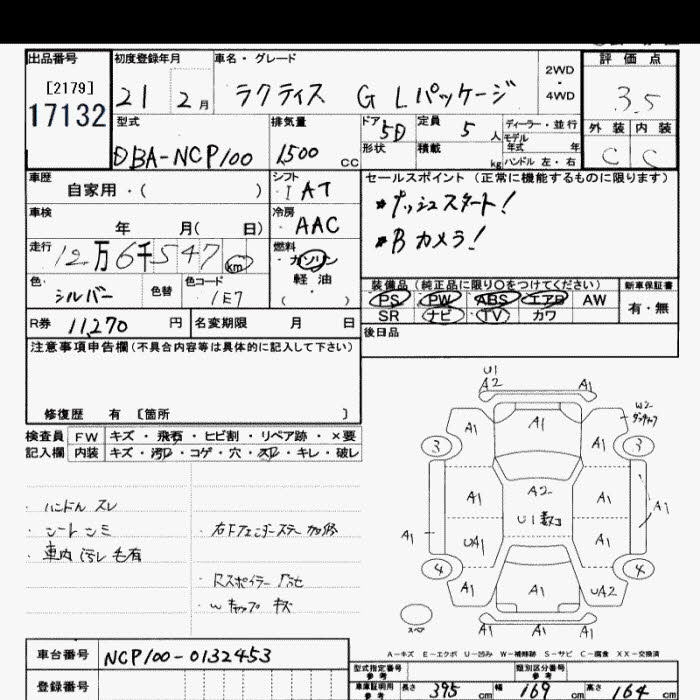 出品番号 初度登録年月 車名・グレード 2WD・4WD 評価点
[2179]
17132 21 2月 ラクティス G Lパッケージ 3.5
型式 排気量 ドア 5D 定員 5人 ディーラー・並行 外装 内装
DBA-NCP100 1500cc 形状 積載 kg モデル年式 年 ハンドル 左・右 C C
車歴 自家用・( ) シフト IAT セールスポイント(正常に機能するものに限ります)
車検 年 月( 日) 冷房 AAC *プッシュスタート!
走行 12万6千547km 燃料 ガソリン *Bカメラ!
軽油
・( )
色・ シルバー 色替 色コード 1E7 装備品(純正品に限り○をつけてください) 新車保証書
PS PW ABS エアB AW 有・無
R券 11,270円 名変期限 月 日 SR ナビ TV カワ
注意事項申告欄(不具合内容等は具体的に記入して下さい) 後日品
修復歴 有 [箇所 ]
検査員 FW キズ・飛石・ヒビ割・リペア跡・×要
記入欄 内装 キズ・汚れ・コゲ・穴・スレ・キレ・破レ
・ハンドル スレ
・シート シミ 右Fフェンダーステー 加修
・車内 汚レ 毛有
・Rスポイラー
・Wキャップ キズ
U1
A2 A1
A1 W2
3 A1 A1 3
A1 A2 A1 A1
A1 UA1 U1 数コ A1
4 A1 A1 UA2 4
スペア A1 A1 A1
A-キズ E-エクボ U-凹み W-補修跡 S-サビ C-腐食 XX-交換済
車台番号 NCP100-0132453 型式指定番号 参考 類別区分番号 参考
登録番号 車庫証明用 参考 長さ 395cm 幅 169cm 高さ 164cm